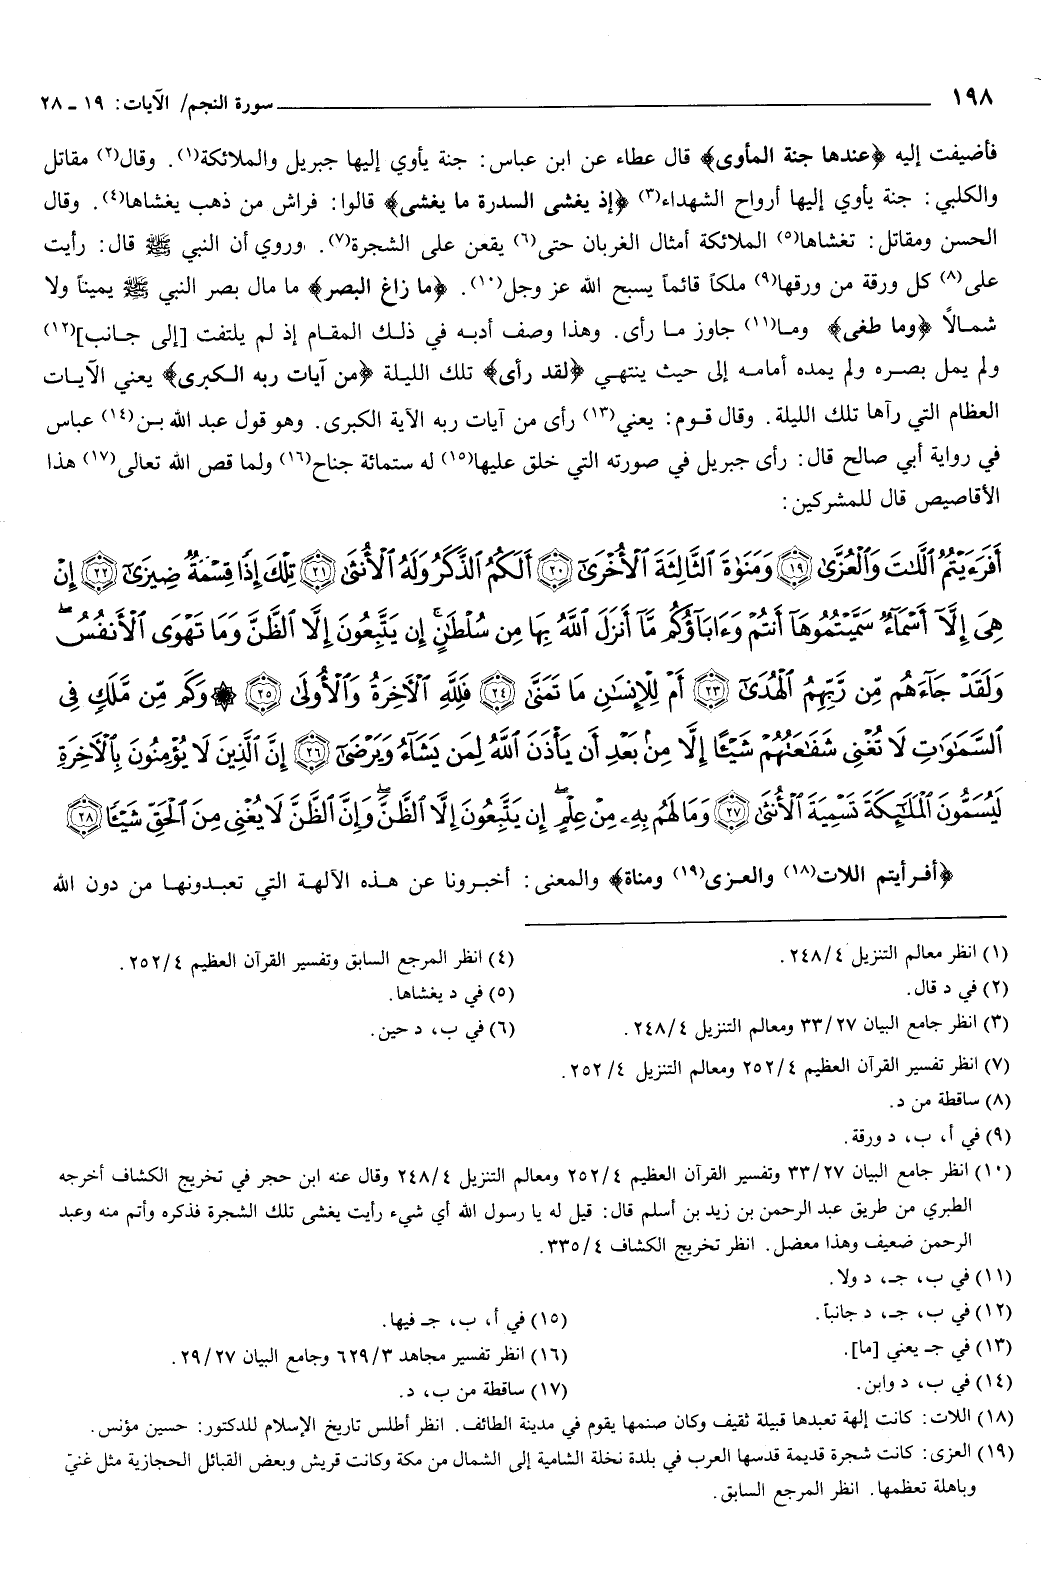 ١٩٨ سورة النجم/ الآيات: ١٩ ـ ٢٨
فأضيفت إليه ﴿عندها جنة المأوى﴾ قال عطاء عن ابن عباس: جنة يأوي إليها جبريل والملائكة(١). وقال(٢) مقاتل
والكلبي: جنة يأوي إليها أرواح الشهداء(٣) ﴿إذ يغشى السدرة ما يغشى﴾ قالوا: فراش من ذهب يغشاها(٤). وقال
الحسن ومقاتل: تغشاها(٥) الملائكة أمثال الغربان حتى(٦) يقعن على الشجرة(٧). وروي أن النبي ﷺ قال: رأيت
على(٨) كل ورقة من ورقها(٩) ملكاً قائماً يسبح الله عز وجل(١٠). ﴿ما زاغ البصر﴾ ما مال بصر النبي ﷺ يميناً ولا
شمالاً ﴿وما طغى﴾ وما(١١) جاوز ما رأى. وهذا وصف أدبه في ذلك المقام إذ لم يلتفت [إلى جانب](١٢)
ولم يمل بصره ولم يمده أمامه إلى حيث ينتهي ﴿لقد رأى﴾ تلك الليلة ﴿من آيات ربه الكبرى﴾ يعني الآيات
العظام التي رآها تلك الليلة. وقال قوم: يعني(١٣) رأى من آيات ربه الآية الكبرى. وهو قول عبد الله بن(١٤) عباس
في رواية أبي صالح قال: رأى جبريل في صورته التي خلق عليها(١٥) له ستمائة جناح(١٦) ولما قص الله تعالى(١٧) هذا
الأقاصيص قال للمشركين:
أَفَرَءَيۡتُمُ ٱللَّٰتَ وَٱلۡعُزَّىٰ ١٩ وَمَنَوٰةَ ٱلثَّالِثَةَ ٱلۡأُخۡرَىٰٓ ٢٠ أَلَكُمُ ٱلذَّكَرُ وَلَهُ ٱلۡأُنثَىٰ ٢١ تِلۡكَ إِذٗا قِسۡمَةٞ ضِيزَىٰٓ ٢٢ إِنۡ
هِيَ إِلَّآ أَسۡمَآءٞ سَمَّيۡتُمُوهَآ أَنتُمۡ وَءَابَآؤُكُم مَّآ أَنزَلَ ٱللَّهُ بِهَا مِن سُلۡطَٰنٍۚ إِن يَتَّبِعُونَ إِلَّا ٱلظَّنَّ وَمَا تَهۡوَى ٱلۡأَنفُسُۖ
وَلَقَدۡ جَآءَهُم مِّن رَّبِّهِمُ ٱلۡهُدَىٰٓ ٢٣ أَمۡ لِلۡإِنسَٰنِ مَا تَمَنَّىٰ ٢٤ فَلِلَّهِ ٱلۡأٓخِرَةُ وَٱلۡأُولَىٰ ٢٥ ۞ وَكَم مِّن مَّلَكٖ فِي
ٱلسَّمَٰوَٰتِ لَا تُغۡنِي شَفَٰعَتُهُمۡ شَيۡـًٔا إِلَّا مِنۢ بَعۡدِ أَن يَأۡذَنَ ٱللَّهُ لِمَن يَشَآءُ وَيَرۡضَىٰٓ ٢٦ إِنَّ ٱلَّذِينَ لَا يُؤۡمِنُونَ بِٱلۡأٓخِرَةِ
لَيُسَمُّونَ ٱلۡمَلَٰٓئِكَةَ تَسۡمِيَةَ ٱلۡأُنثَىٰ ٢٧ وَمَا لَهُم بِهِۦ مِنۡ عِلۡمٍۖ إِن يَتَّبِعُونَ إِلَّا ٱلظَّنَّۖ وَإِنَّ ٱلظَّنَّ لَا يُغۡنِي مِنَ ٱلۡحَقِّ شَيۡـٔٗا ٢٨
﴿أفرأيتم اللات(١٨) والعزى(١٩) ومناة﴾ والمعنى: أخبرونا عن هذه الآلهة التي تعبدونها من دون الله
(١) انظر معالم التنزيل ٢٤٨/٤.
(٢) في د قال.
(٣) انظر جامع البيان ٣٣/٢٧ ومعالم التنزيل ٢٤٨/٤.
(٤) انظر المرجع السابق وتفسير القرآن العظيم ٢٥٢/٤.
(٥) في د يغشاها.
(٦) في ب، د حين.
(٧) انظر تفسير القرآن العظيم ٢٥٢/٤ ومعالم التنزيل ٢٥٢/٤.
(٨) ساقطة من د.
(٩) في أ، ب، د ورقة.
(١٠) انظر جامع البيان ٣٣/٢٧ وتفسير القرآن العظيم ٢٥٢/٤ ومعالم التنزيل ٢٤٨/٤ وقال عنه ابن حجر في تخريج الكشاف أخرجه
الطبري من طريق عبد الرحمن بن زيد بن أسلم قال: قيل له يا رسول الله أي شيء رأيت يغشى تلك الشجرة فذكره وأتم منه وعبد
الرحمن ضعيف وهذا معضل. انظر تخريج الكشاف ٣٣٥/٤.
(١١) في ب، جـ، د ولا.
(١٢) في ب، جـ، د جانباً.
(١٣) في جـ يعني [ما].
(١٤) في ب، د وابن.
(١٥) في أ، ب، جـ فيها.
(١٦) انظر تفسير مجاهد ٦٢٩/٣ وجامع البيان ٢٩/٢٧.
(١٧) ساقطة من ب، د.
(١٨) اللات: كانت إلهة تعبدها قبيلة ثقيف وكان صنمها يقوم في مدينة الطائف. انظر أطلس تاريخ الإسلام للدكتور: حسين مؤنس.
(١٩) العزى: كانت شجرة قديمة قدسها العرب في بلدة نخلة الشامية إلى الشمال من مكة وكانت قريش وبعض القبائل الحجازية مثل غنيّ
وباهلة تعظمها. انظر المرجع السابق.